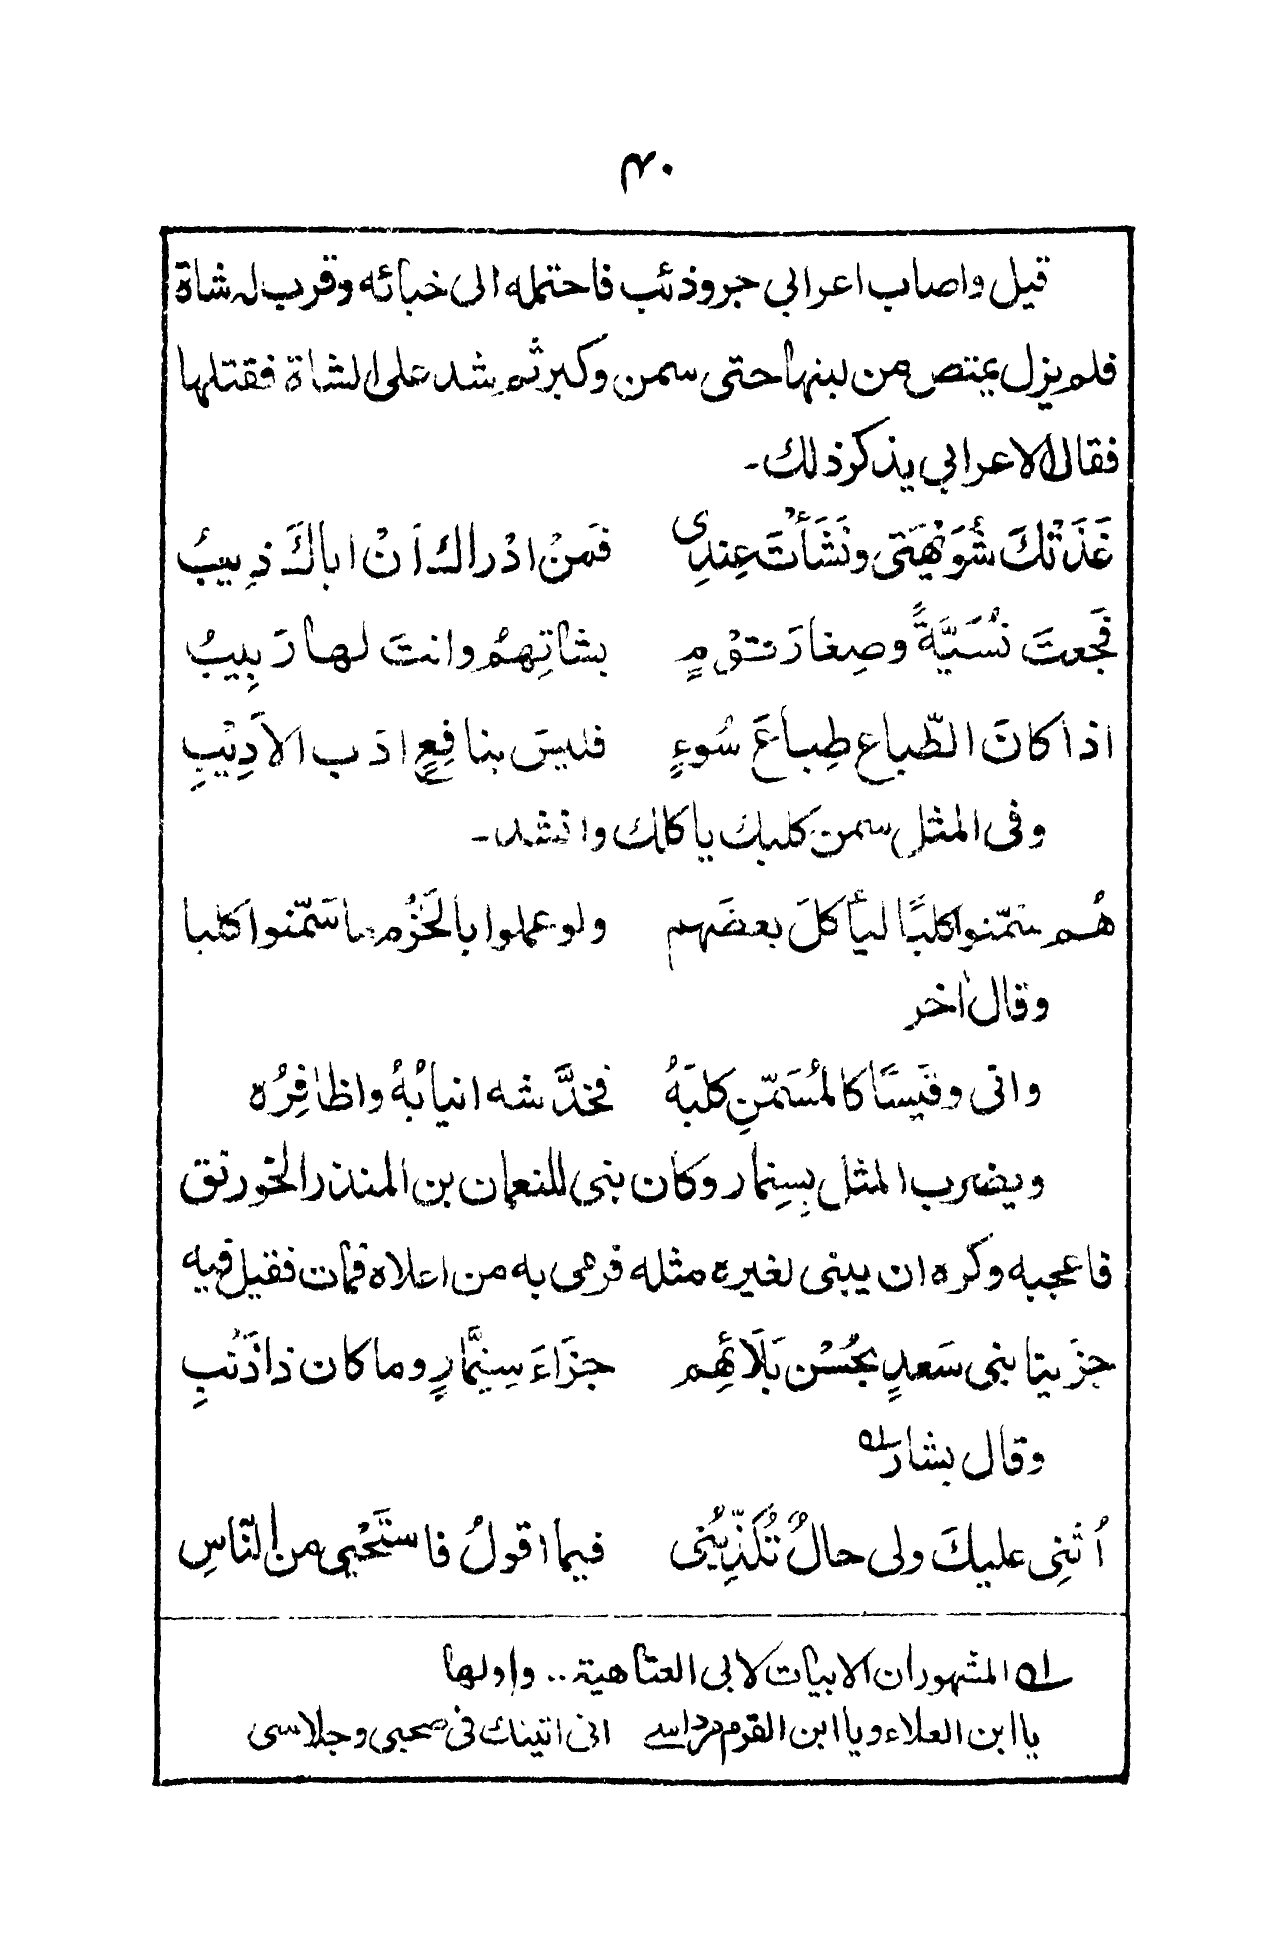 ۴۰
قيل واصاب اعرابي جرو ذئب فاحتمله الى خبائه وقرب له شاة
فلم يزل يمتص من لبنها حتى سمن وكبر ثم شد على الشاة فقتلها
فقال الاعرابي يذكر ذلك ـ
غَذَتْكَ شُوَيْهَتى ونَشَأْتَ عِندِى فَمَنْ ادْراكَ اَنْ اباكَ ذِيبُ
فَجعتَ نُسَيَّةً وصِغارَ قَوْمٍ بشاتِهِمُ وانتَ لها رَبِيبُ
اذا كانَ الطّباع طِباعَ سُوءٍ فليسَ بنافِعٍ ادَب الاَدِيْبِ
وفى المثل سمن كلبك ياكلك وانشد ـ
هُم سَمّنوا كلبًا ليأكلَ بعضَهم ولو عملوا بالحَزْم ما سَمّنوا كلبا
وقال اٰخر
وانى وقَيسًا كالمُسَمّنِ كلبَهُ فخدَّشه انيابُهُ واظافِرُه
ويضرب المثل بِسِنِمار وكان بنى للنعمان بن المنذر الخورنق
فاعجبه وكره ان يبنى لغيره مثله فرمى به من اعلاه فمات فقيل فيه
جزَيتا بنى سَعدٍ بحُسْن بَلَائِهِم جزَاءَ سِنِمَّارٍ وما كان ذا ذَنْبِ
وقال بشار ؂۱
اُثنِى عليكَ ولى حالٌ تُكَذِّبُنِى فيما اقولُ فاستَحْيِى من النّاسِ
؂۱ المشهور ان الابيات لابى العتاهية .. واولها
يا ابن العلاء ويا ابن القوم مرداسے انى اتيتك فى صحبى وجلاسى